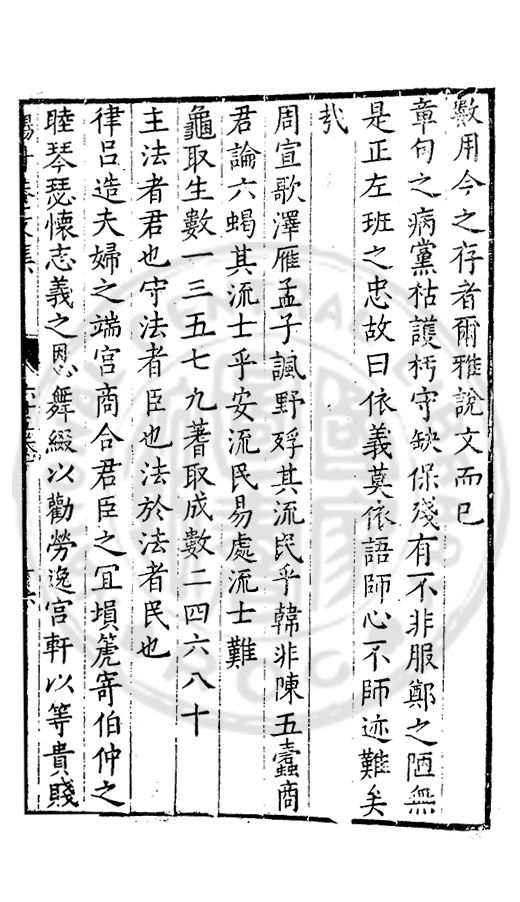 數用今之存者爾雅說文而已
章句之病黨枯護朽守缺保殘有不非服鄭之陋無
是正左班之忠故曰依義莫依語師心不師迹難矣
哉
周宣歌澤雁孟子諷野殍其流民乎韓非陳五蠹商
君論六蝎其流士乎安流民易處流士難
龜取生數一三五七九蓍取成數二四六八十
主法者君也守法者臣也法於法者民也
律呂造夫婦之端宮商合君臣之冝塤篪寄伯仲之
睦琴瑟懷志義之恩舞綴以勸勞逸宮軒以等貴賤